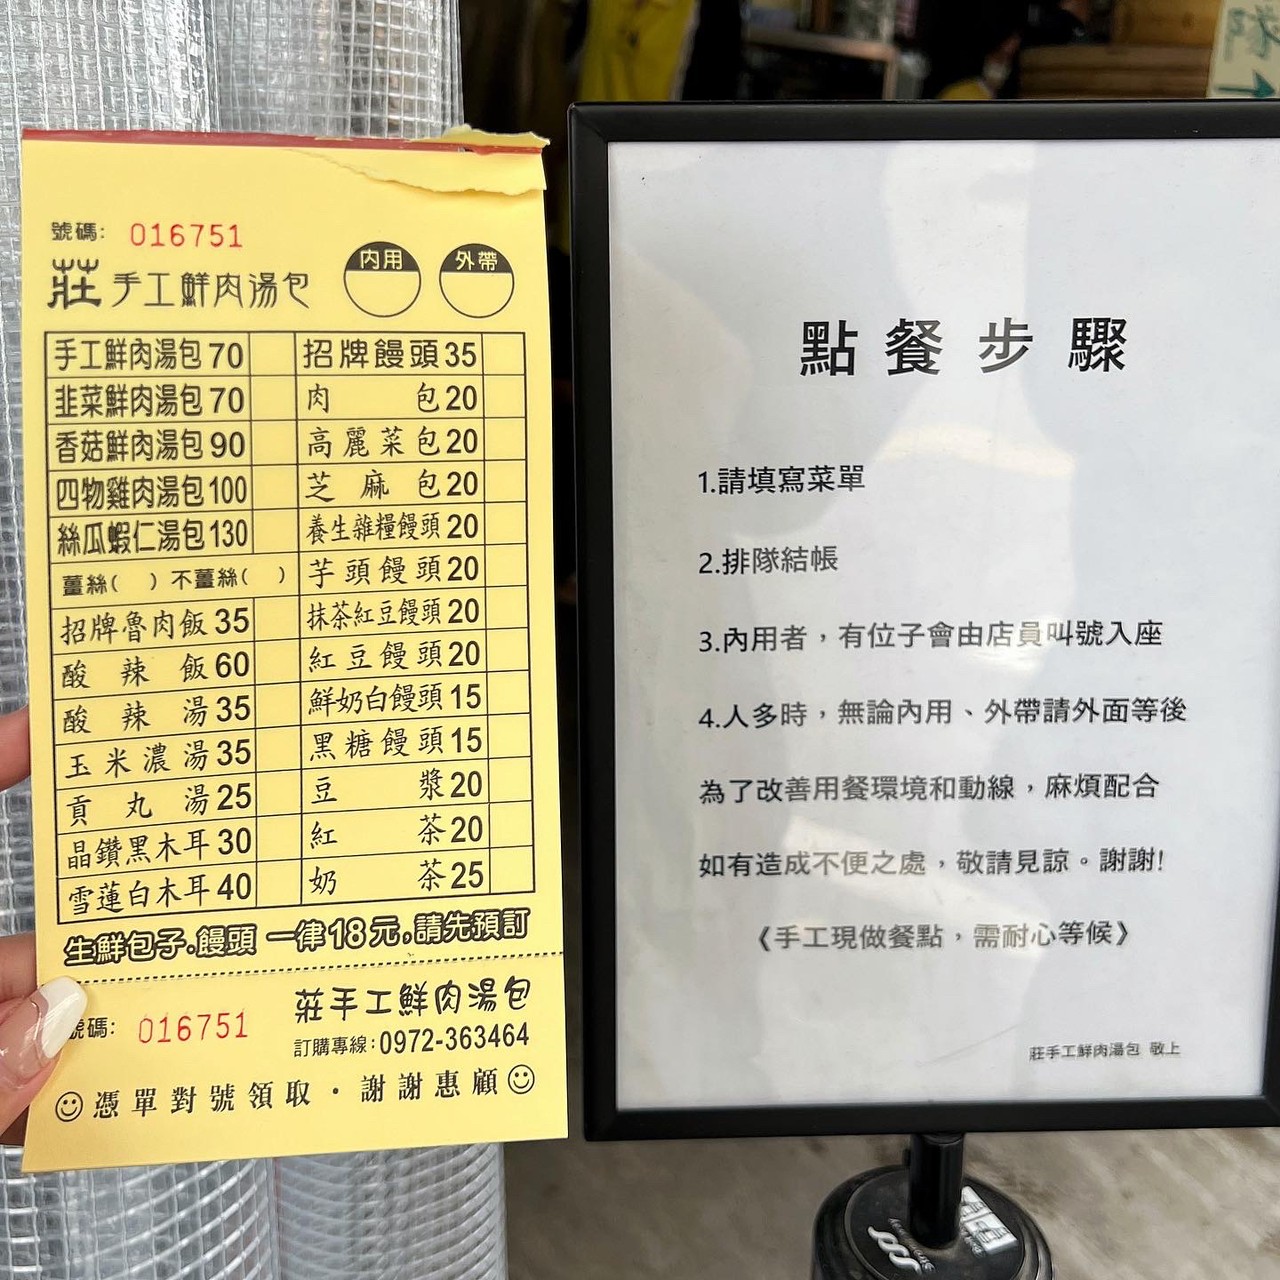 號碼: 016751
莊 手工鮮肉湯包 內用 外帶
手工鮮肉湯包 70
韭菜鮮肉湯包 70
香菇鮮肉湯包 90
四物雞肉湯包 100
絲瓜蝦仁湯包 130
薑絲( ) 不薑絲( )
招牌魯肉飯 35
酸辣飯 60
酸辣湯 35
玉米濃湯 35
貢丸湯 25
晶鑽黑木耳 30
雪蓮白木耳 40
招牌饅頭 35
肉包 20
高麗菜包 20
芝麻包 20
養生雜糧饅頭 20
芋頭饅頭 20
抹茶紅豆饅頭 20
紅豆饅頭 20
鮮奶白饅頭 15
黑糖饅頭 15
豆漿 20
紅茶 20
奶茶 25
生鮮包子.饅頭 一律18元,請先預訂
號碼: 016751
莊手工鮮肉湯包
訂購專線:0972-363464
憑單對號領取・謝謝惠顧
點餐步驟
1.請填寫菜單
2.排隊結帳
3.內用者，有位子會由店員叫號入座
4.人多時，無論內用、外帶請外面等後
為了改善用餐環境和動線，麻煩配合
如有造成不便之處，敬請見諒。謝謝!
《手工現做餐點，需耐心等候》
莊手工鮮肉湯包 敬上